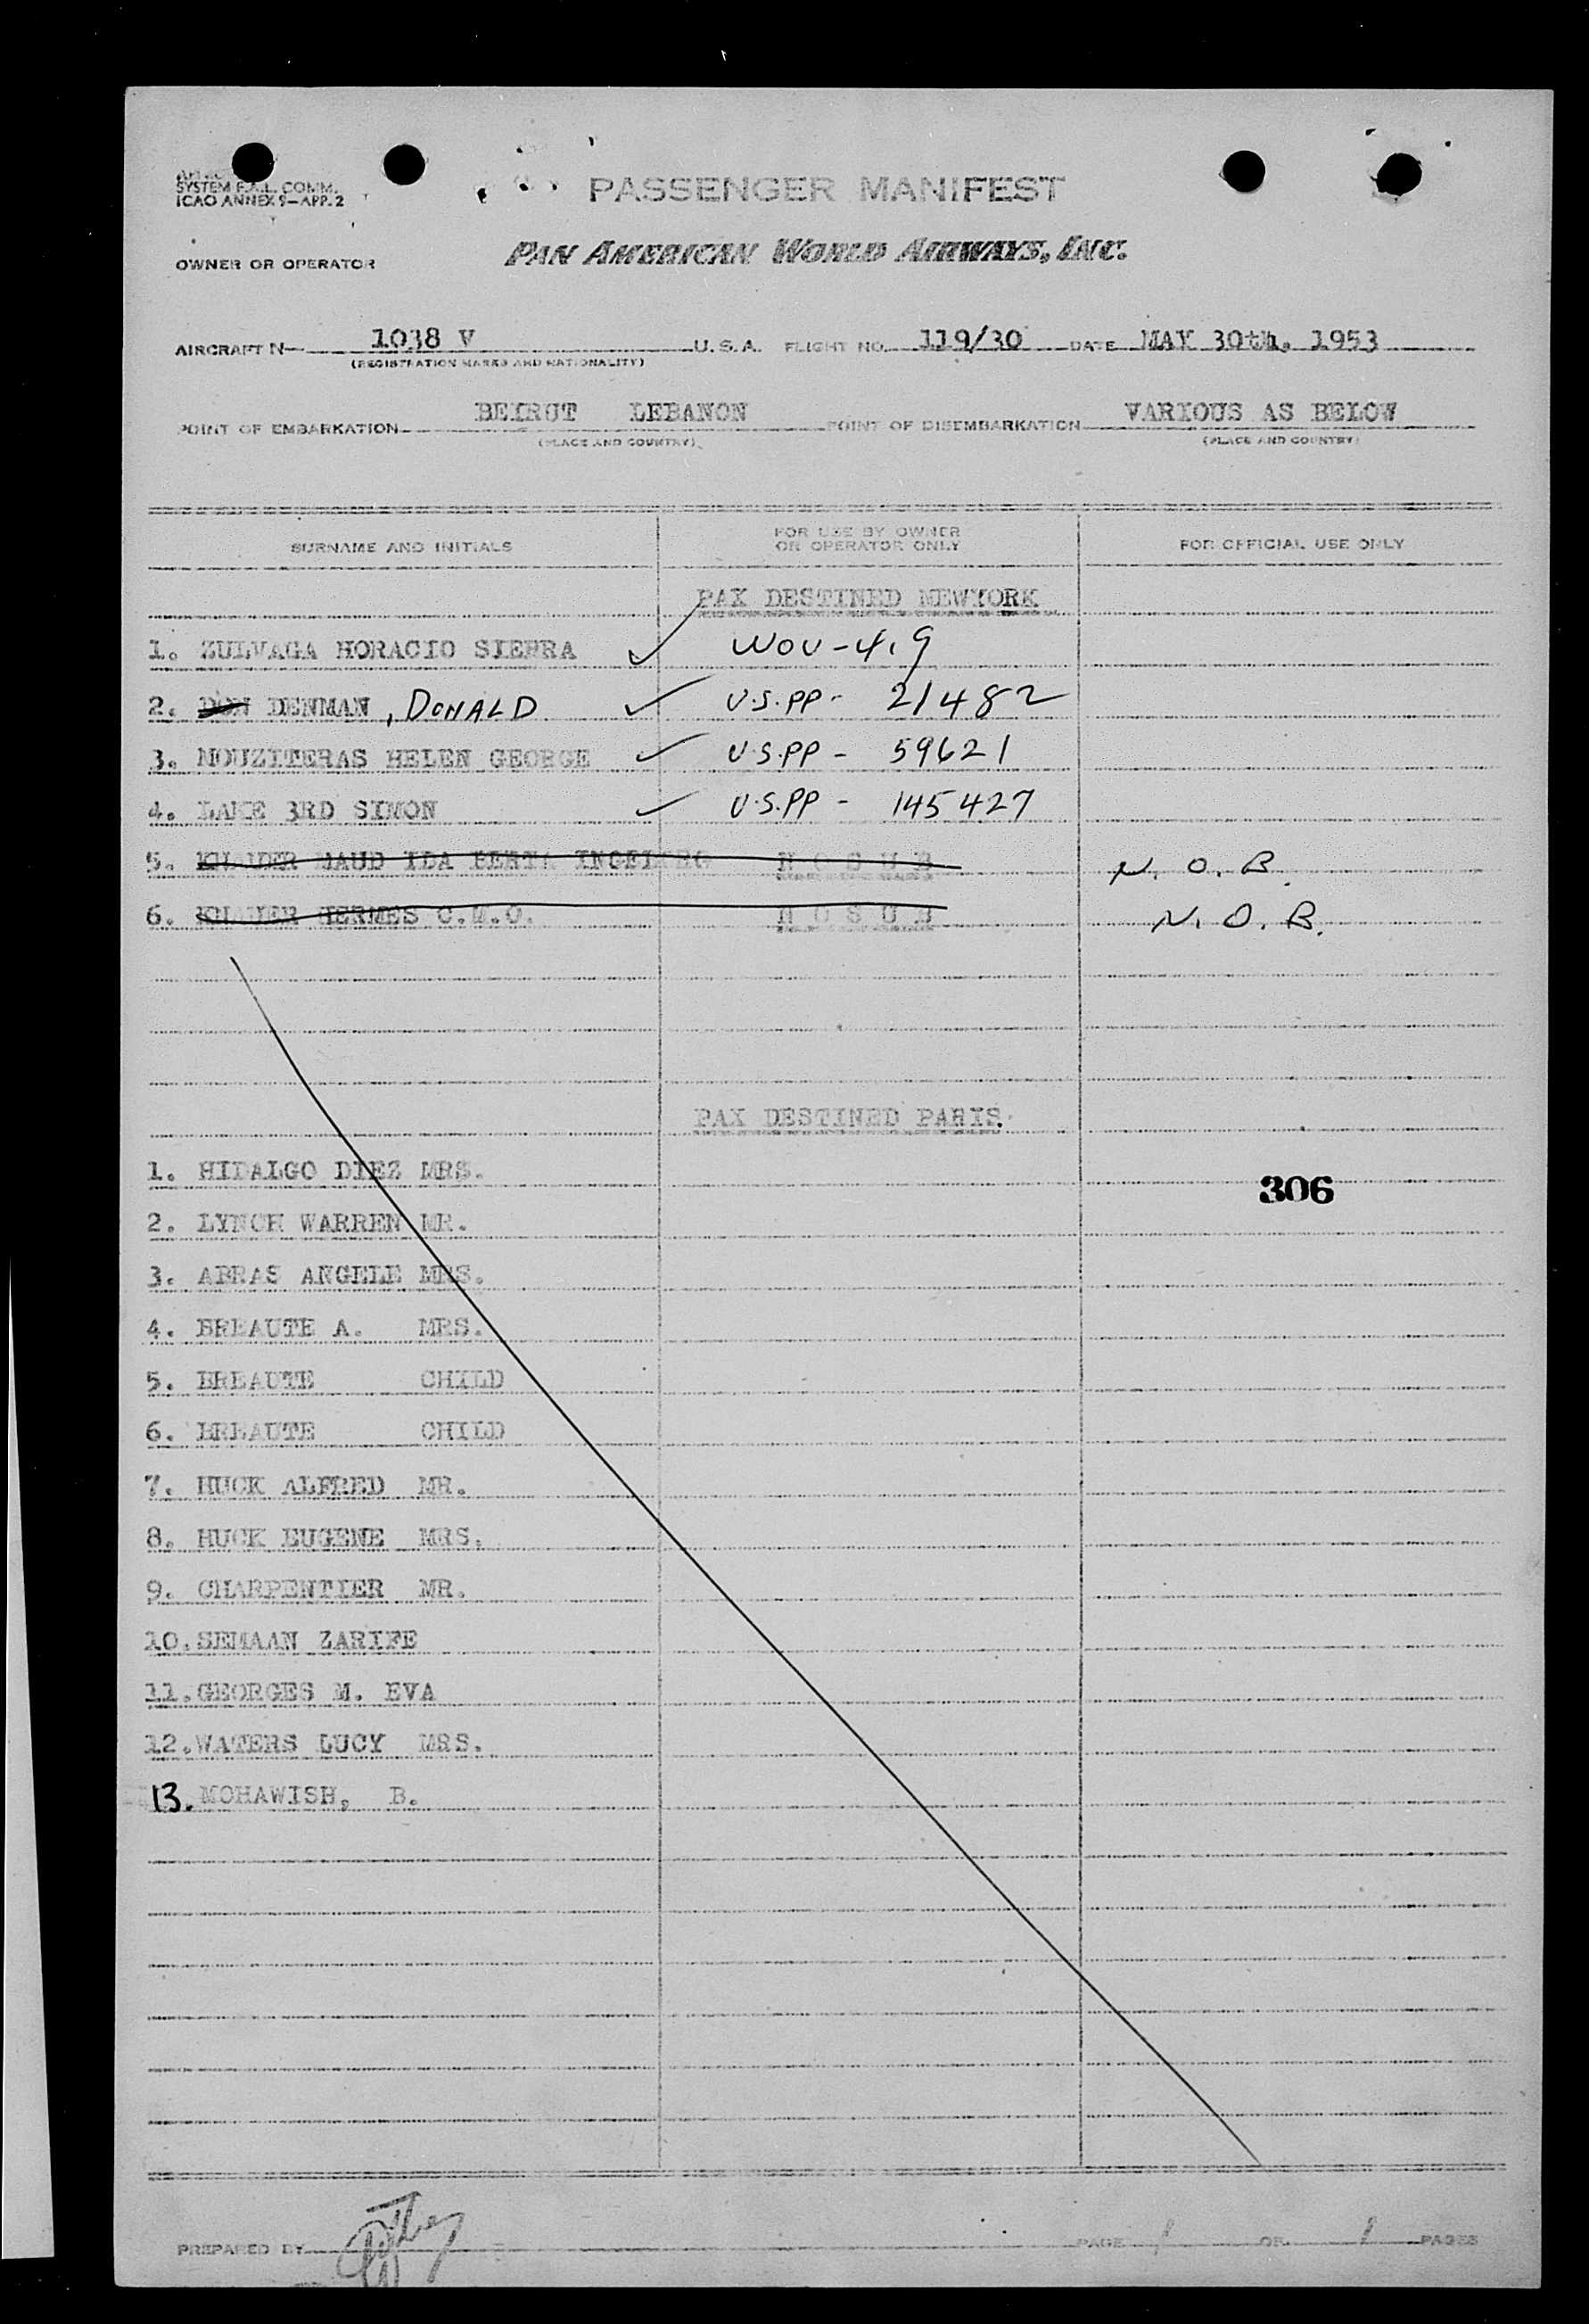 SYSTEM F.A.L. COMM.
ICAO ANNEX 9-APP. 2
PASSENGER MANIFEST
OWNER OR OPERATOR PAN AMERICAN WORLD AIRWAYS, INC.
AIRCRAFT N 1038 V U.S.A. FLIGHT NO. 119/30 DATE MAY 30th, 1953
(REGISTRATION MARKS AND NATIONALITY)
POINT OF EMBARKATION BEIRUT LEBANON POINT OF DISEMBARKATION VARIOUS AS BELOW
(PLACE AND COUNTRY) (PLACE AND COUNTRY)
SURNAME AND INITIALS FOR USE BY OWNER OR OPERATOR ONLY FOR OFFICIAL USE ONLY
PAX DESTINED NEWYORK
1. ZULVAGA HORACIO SIERRA WOU-4.9
2. DON DENMAN, DONALD U.S.PP - 21482
3. MOUZITERAS HELEN GEORGE U.S.PP - 59621
4. LAKE 3RD SIMON U.S.PP - 145427
5. MAUD IDA BERTA N O S U B N.O.B.
6. HERMES C.M.O. N O S U B N.O.B.
PAX DESTINED PARIS.
1. HIDALGO DIEZ MRS.
306
2. LYNCH WARREN MR.
3. ABRAS ANGELE MRS.
4. BREAUTE A. MRS.
5. BREAUTE CHILD
6. BREAUTE CHILD
7. HUCK ALFRED MR.
8. HUCK EUGENE MRS.
9. CHARPENTIER MR.
10. SEMAAN ZARIFE
11. GEORGES M. EVA
12. WATERS LUCY MRS.
13. MOHAWISH, B.
PREPARED BY PAGE 1 OF 1 PAGES